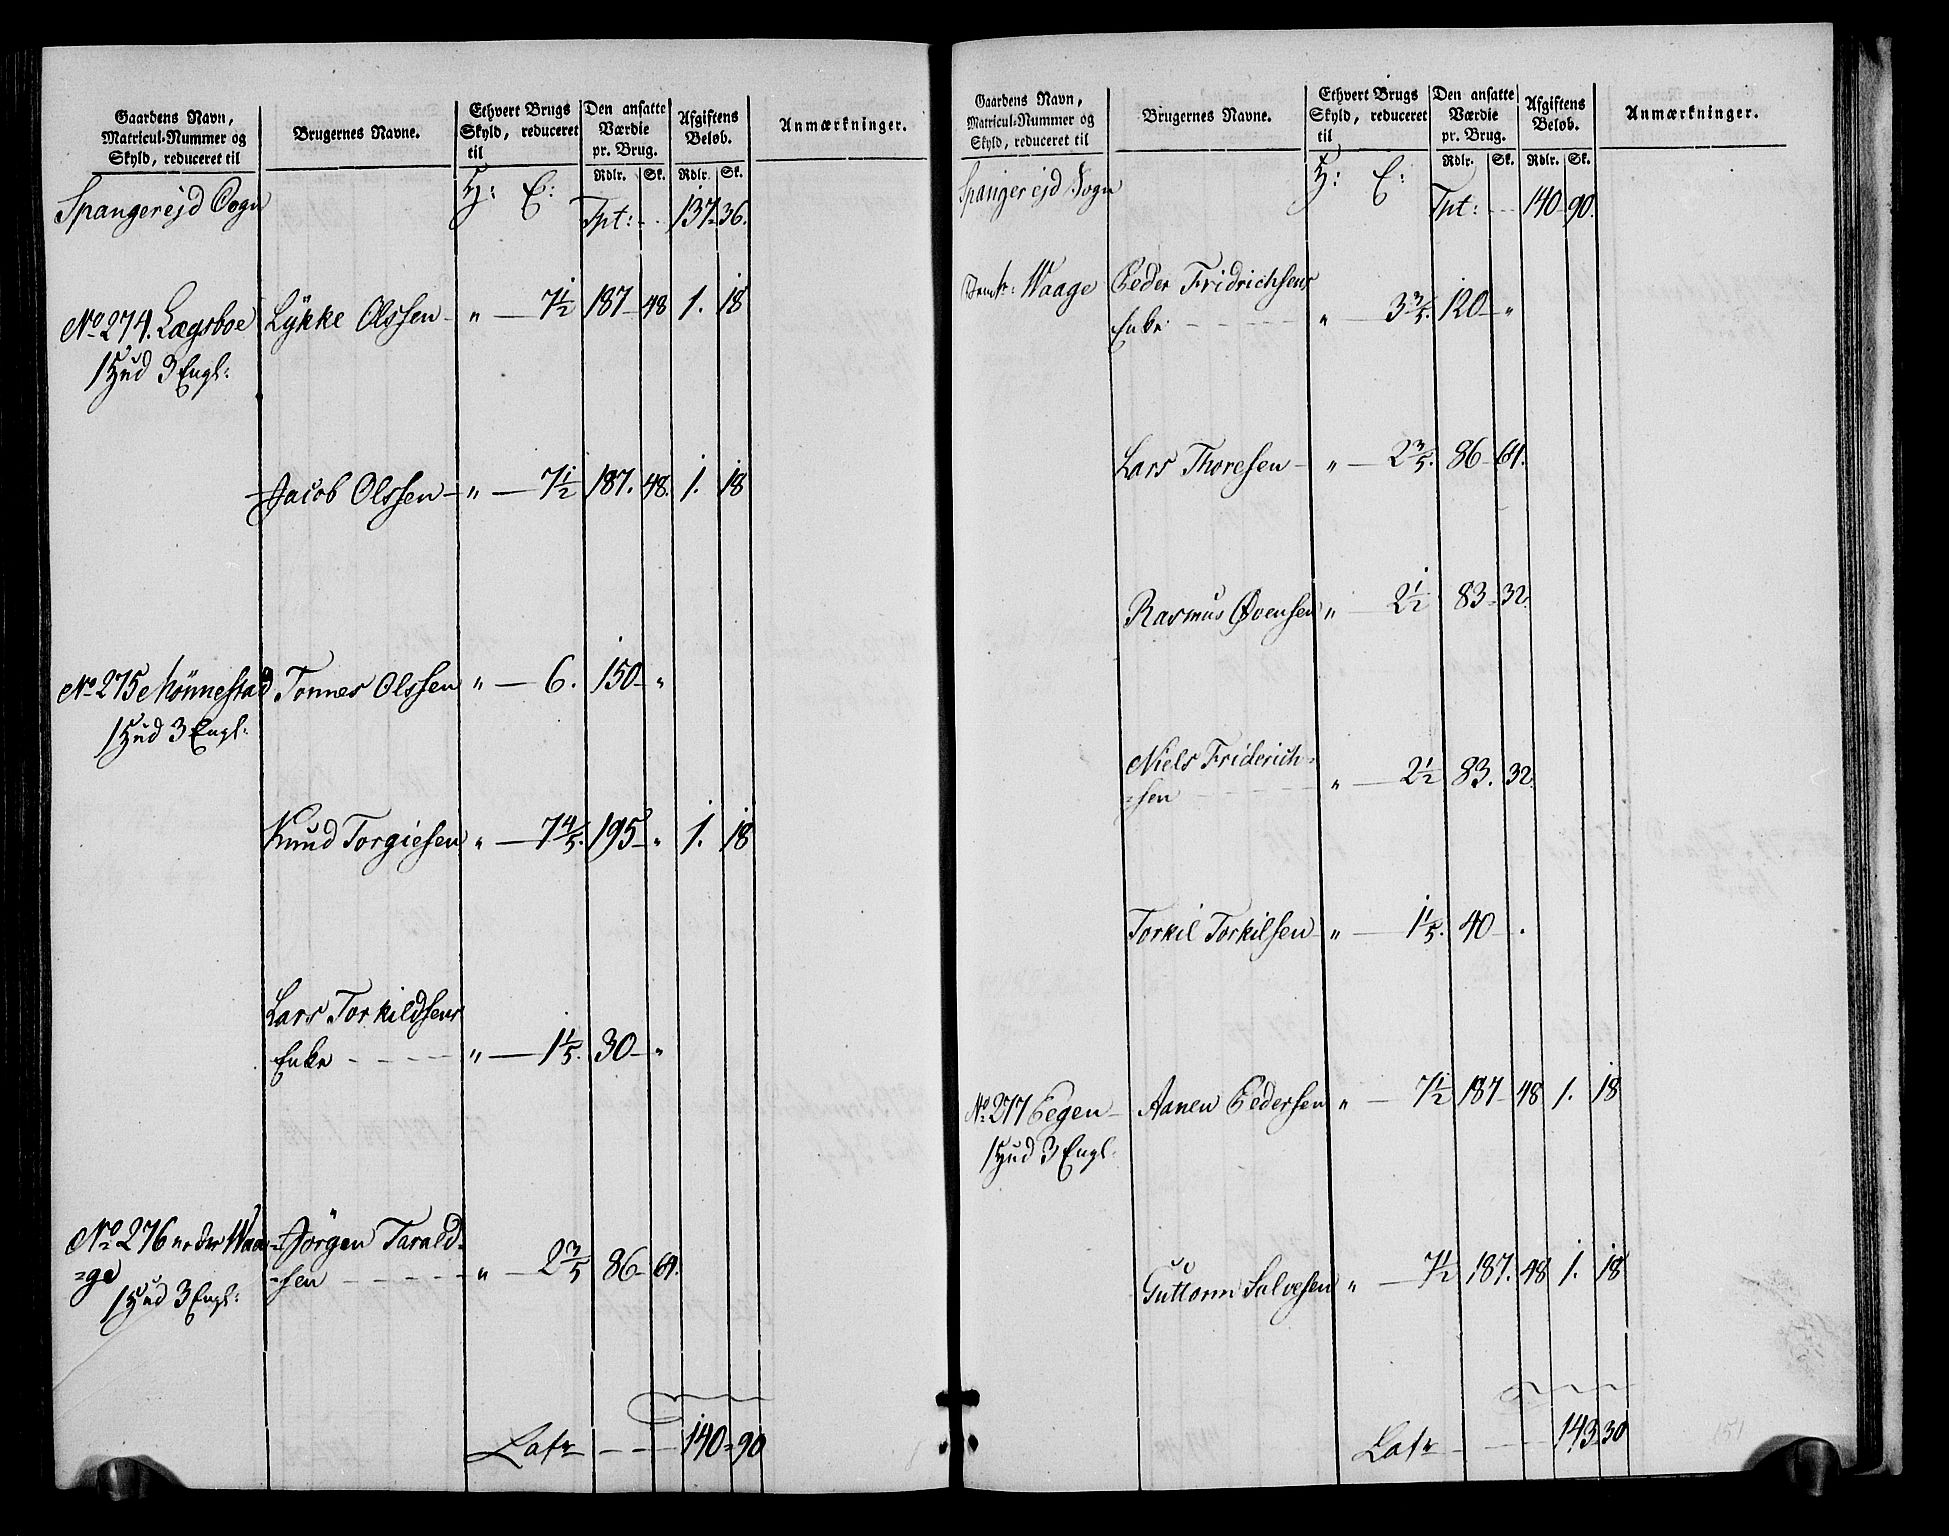 Gaardens Navn,
Matricul-Nummer og
Skyld, reduceret til
Brugernes Navne.
Ethvert Brugs
Skyld, reduceret
til
Den ansatte
Værdie
pr. Brug.
Rdlr. Sk.
Afgiftens
Beløb.
Rdlr. Sk.
Anmærkninger.
Spangereid Sogn H: E: Tpt: - 137 36.
No 274. Lægsboe Lykke Olssen - " - 7 1/2 187 - 48 1. 18
1 Hud 3 Engl:
Jacob Olssen - " - 7 1/2 187. 48. 1. 18
No 275 Mönnestad Tonnes Olssen " - 6. 150 - "
1 Hud 3 Engl:
Knud Torgiesen " - 7 4/5. 195 - " 1. 18
Lars Torkildsens
Enke - - - - " - 1 1/5. 30 - "
No 276 nedre Waa= Jörgen Tarald=
=ge =sen - - - - " - 2 3/5 86 - 64.
1 Hud 3 Engl:
Latr - - 140 = 90
Gaardens Navn,
Matricul-Nummer og
Skyld, reduceret til
Brugernes Navne.
Ethvert Brugs
Skyld, reduceret
til
Den ansatte
Værdie
pr. Brug.
Rdlr. Sk.
Afgiftens
Beløb.
Rdlr. Sk.
Anmærkninger.
Spangereid Sogn H: E: Tpt: - - 140 90.
Waage Peder Fridrichsens
Enke - - - - " - 3 3/5. 120 - "
Lars Thoresen - " - 2 3/5. 86 - 64.
Rasmus Øvensen " - 2 1/2 83 - 32.
Niels Friderich=
=sen - - - - " - 2 1/2 83. 32.
Torkil Torkilsen - " - 1 1/5. 40 - .
No 277 Eegen - Aanen Pedersen " - 7 1/2 187 - 48 1. 18
1 Hud 3 Engl:
Guttorm Salvesen " - 7 1/2 187. 48 1. 18
Latr - - 143 30
151